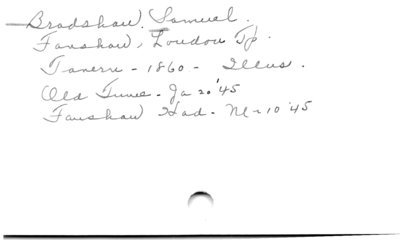 Bradshaw, Samuel.
Fanshaw, London Tp.
Tavern - 1860 - Illus.
Old Time - Ja 20 '45
Fanshaw Had - Ml - 10 '45